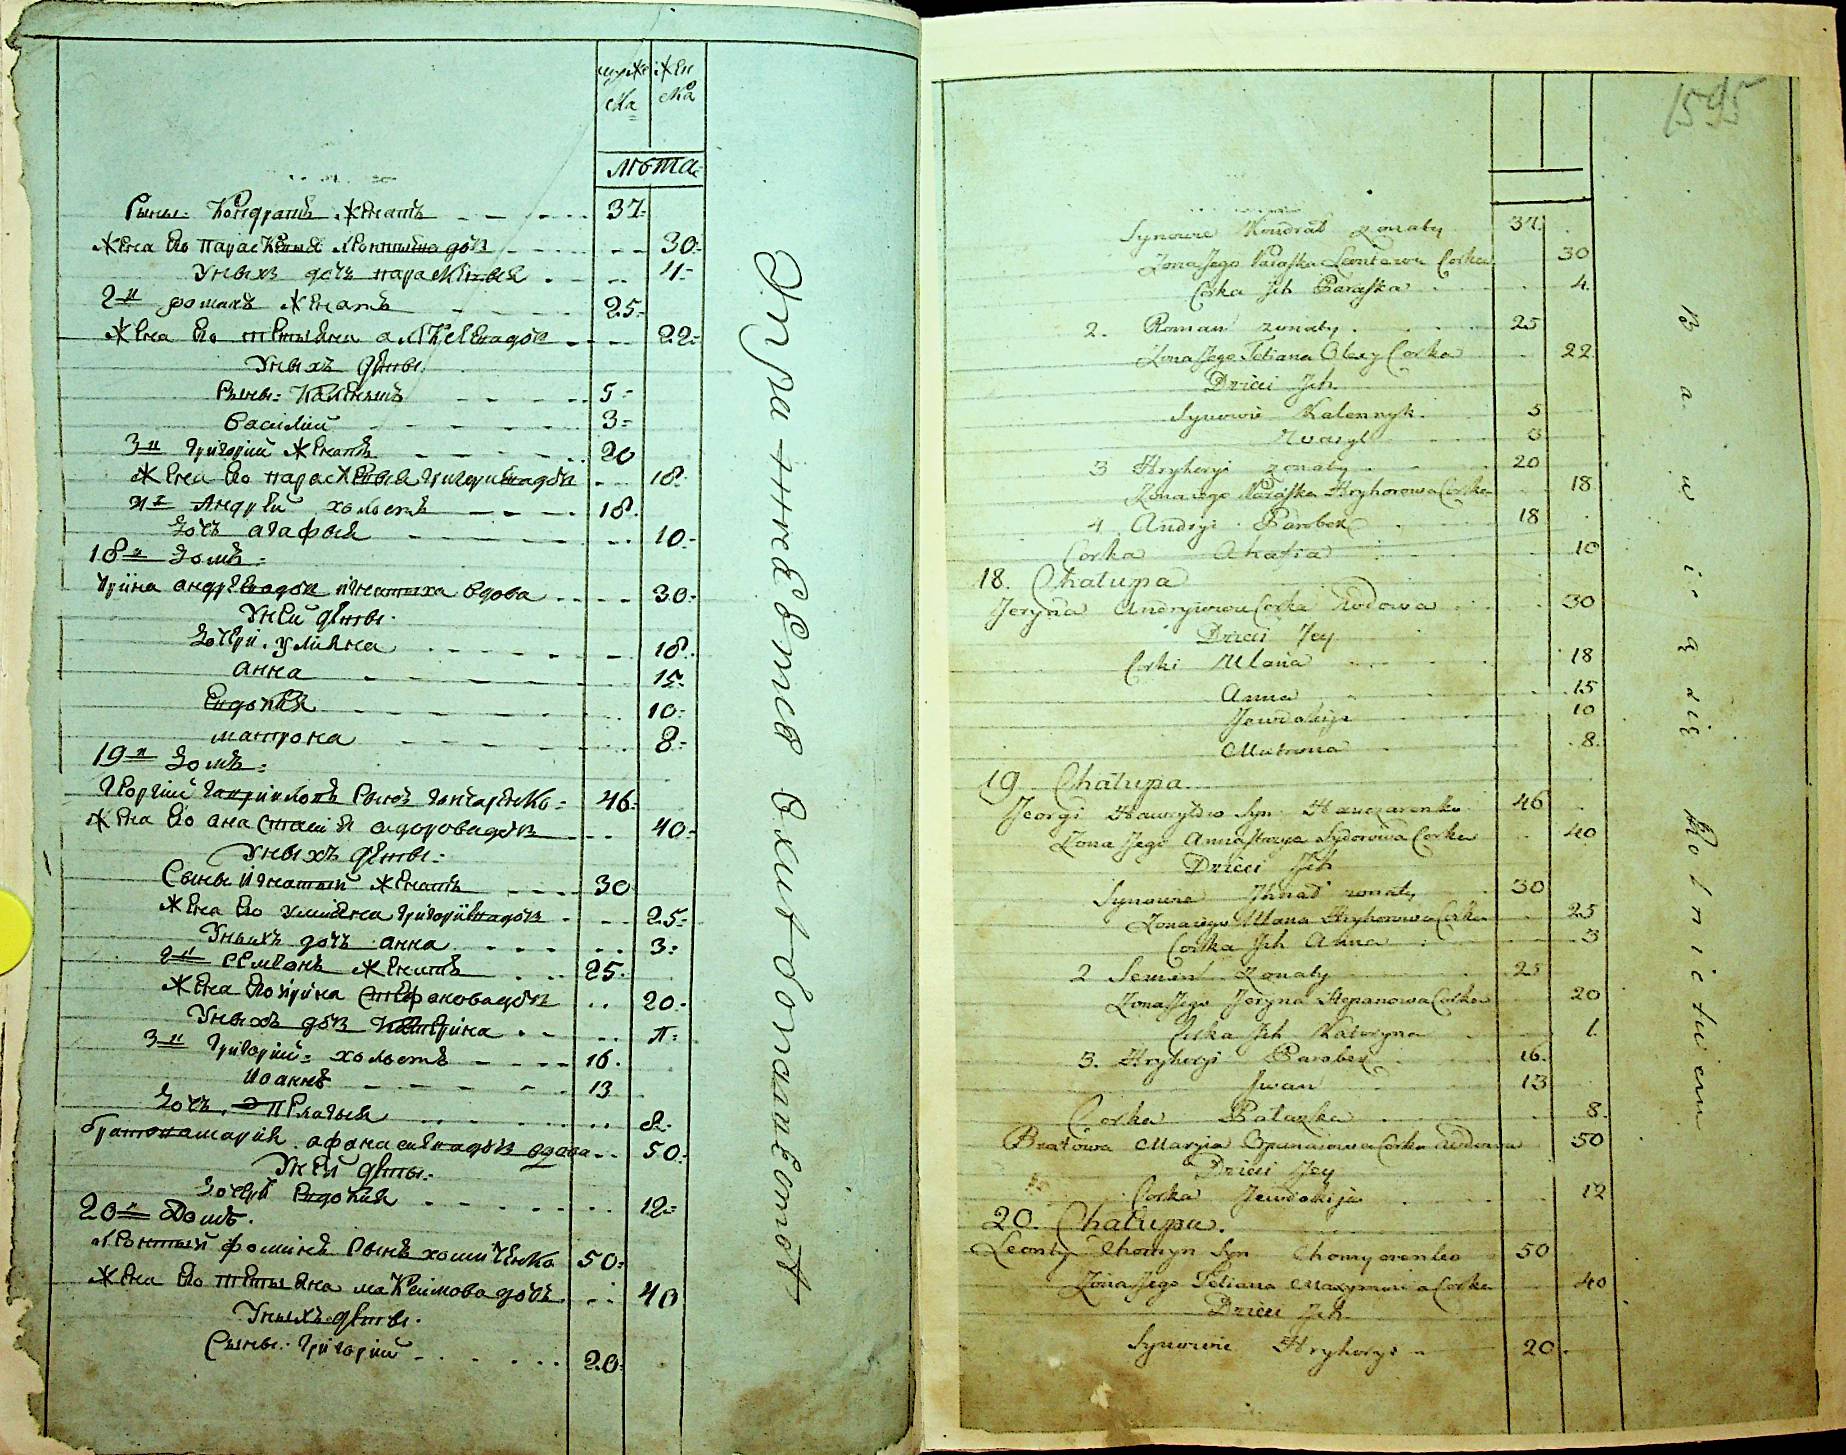 муже ска
жен ска
лѣта
Сыны Кондратъ женатъ 37
жена Его параскевия леонтиева дочь 30
Унихъ дочь параскевия 4
2й романъ женатъ 25
жена Его тетияна алексеева дочь 22
Унихъ дѣти
Сыны Каленикъ 5
василий 3
3й григорий женатъ 20
жена Его параскевия григориева дочь 18
4й Андрей холостъ 18
Дочь агафия 10
18й Домъ
Ирина андреева дочь вдова 30
Уней дѣти
Дочери улияна 18
анна 15
Евдокия 10
матрона 8
19й Домъ
георгий гавриловъ Сынъ ганчаренко 46
жена Его анастасия сидорова дочь 40
Унихъ дѣти
Сыны игнатий женатъ 30
жена Его улияна григориева дочь 25
Унихъ дочь анна 3
2й семионъ женатъ 25
жена Его ирина стефанова дочь 20
Унихъ дочь катерина л
3й григорий холостъ 16
иоаннъ 13
Дочь пелагия 8
братова мария афанасиева дочь вдова 50
Уней дѣти
Дочери Евдокия 12
20й Домъ
леонтий фоминъ Сынъ хомиченко 50
жена Его тетияна максимова дочь 40
Унихъ дѣти
Сыны григорий 20
1595
Synowie Kondrat zonaty 37
Zona Jego Paraska Leontewa Corka 30
Corka Jch Paraska 4
2. Roman zonaty 25
Zona Jego Tetiana Olexy Corka 22
Dzieci Jch
Synowie Kalennyk 5
Wasyl 3
3 Hryhoryi zonaty 20
Zona Jego Paraska Hryhorowa Corka 18
4 Andryi Parobek 18
Corka Ahafia 10
18. Chałupa
Jeryna Andryiowa Corka Wdowa 30
Dzieci Jey
Corki Ulana 18
Anna 15
Jewdokija 10
Matrona 8
19 Chałupa
Jeorgi Hawryłow Syn Hanczarenko 46
Zona Jego Annastazya Sydorowa Corka 40
Dzieci Jch
Synowie Jhnat zonaty 30
Zona Jego Ulana Hryhorowa Corka 25
Corka Jch Anna 3
2 Semion zonaty 25
Zona Jego Jeryna Stepanowa Corka 20
Corka Jch Kateryna 1
3. Hryhoryi Parobek 16
Jwan 13
Corka Pałazka 8
Bratowa Maryia Opanasowa Corka Wdowa 50
Dzieci Jey
Corka Jewdokija 12
20. Chałupa
Leonty Chomyn Syn Chomyczenko 50
Zona Jego Tetiana Maxymowa Corka 40
Dzieci Jch
Synowie Hryhoryi 20
Bawiący się Rolnictwem